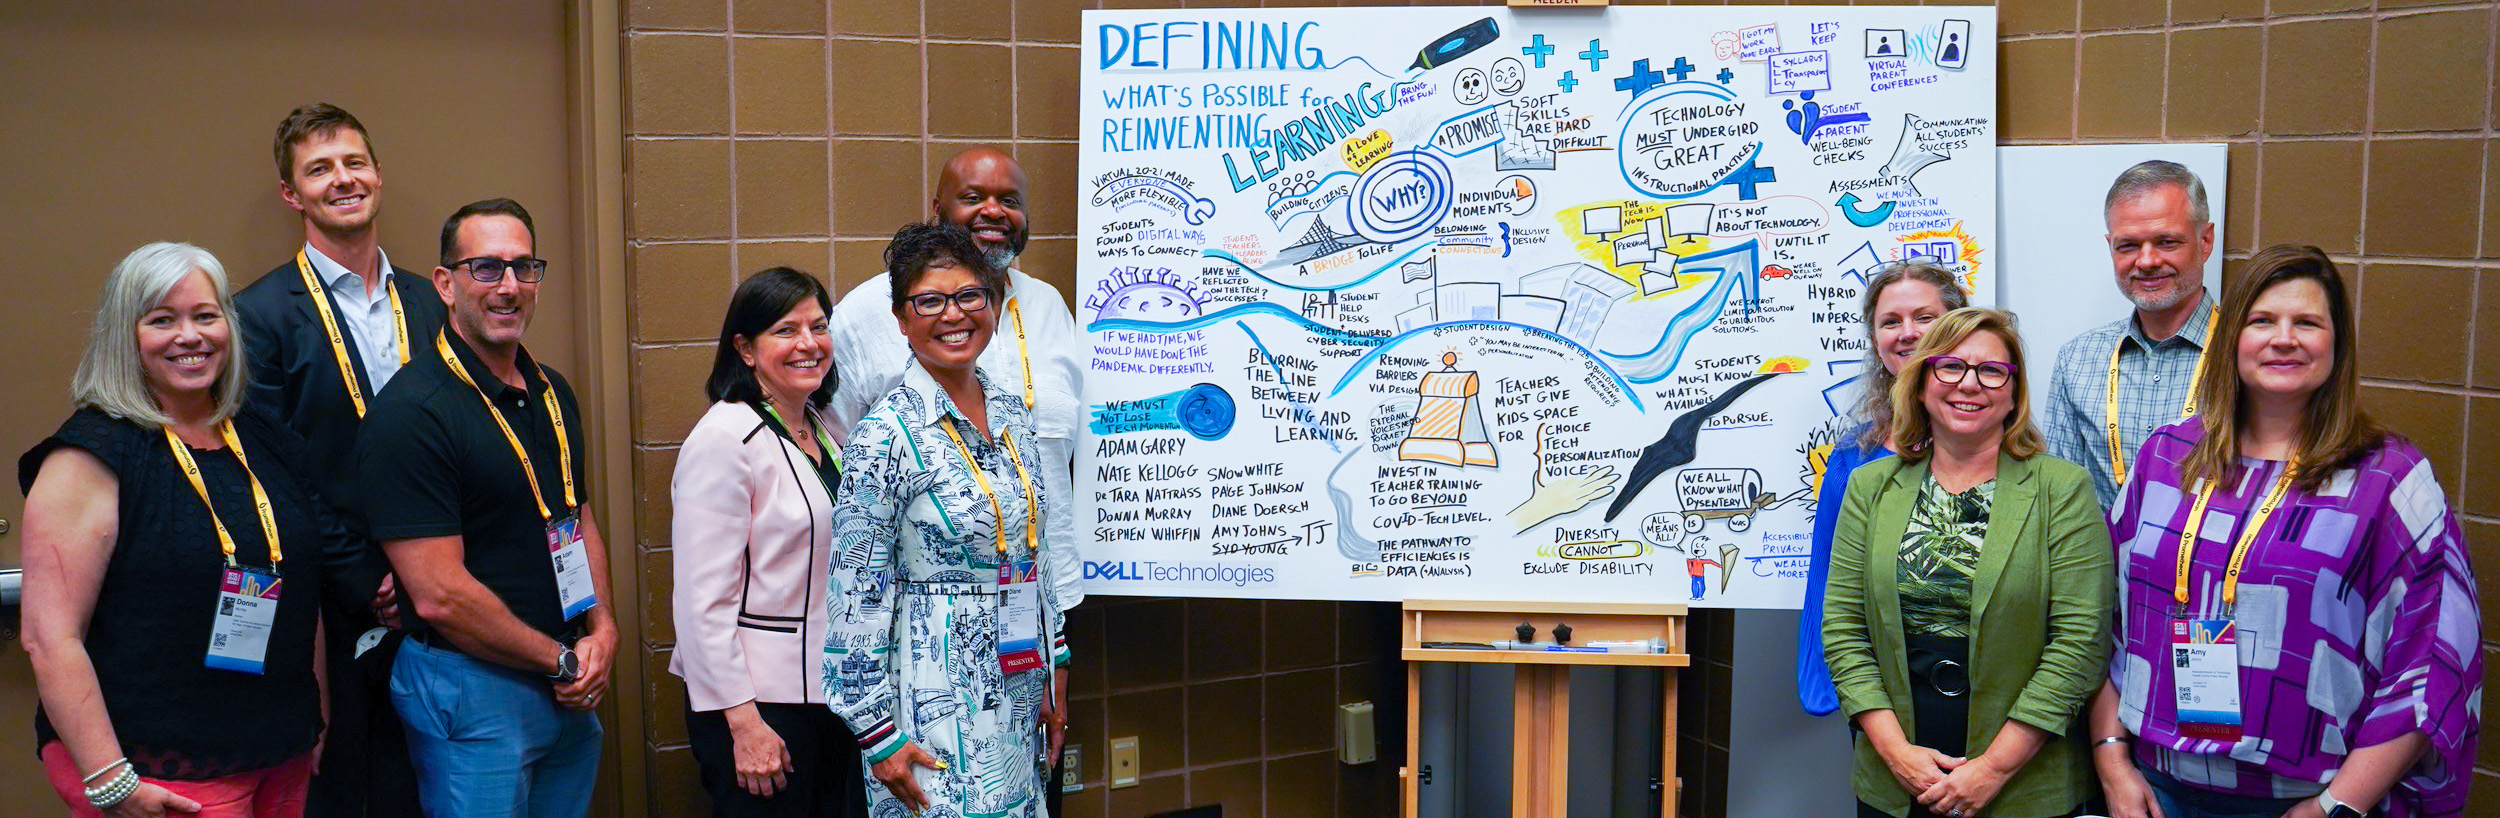 DEFINING
WHAT'S POSSIBLE for
REINVENTING
LEARNING
BRING
THE FUN!
A LOVE
of LEARNING
A PROMISE
SOFT
SKILLS
ARE HARD
DIFFICULT
WHY?
BUILDING CITIZENS
A BRIDGE TO LIFE
INDIVIDUAL
MOMENTS
BELONGING
Community
CONNECTIONS
INCLUSIVE
DESIGN
TECHNOLOGY
MUST UNDERGIRD
GREAT
INSTRUCTIONAL PRACTICES
I GOT MY
WORK
DONE EARLY
LET'S
KEEP
SYLLABUS
Transparen
cy
VIRTUAL
PARENT
CONFERENCES
STUDENT
+ PARENT
WELL-BEING
CHECKS
COMMUNICATING
ALL STUDENTS'
SUCCESS
ASSESSMENTS
WE MUST
INVEST IN
PROFESSIONAL
DEVELOPMENT
VIRTUAL 20-21 MADE
EVERYONE
MORE FLEXIBLE
(INCLUDING PARENTS)
STUDENTS
FOUND DIGITAL WAYS
WAYS TO CONNECT
STUDENTS
TEACHERS
+ LEADERS
ALIKE
HAVE WE
REFLECTED
ON THE TECH
SUCCESSES?
IF WE HAD TIME, WE
WOULD HAVE DONE THE
PANDEMIC DIFFERENTLY.
STUDENT
HELP
DESKS
+
STUDENT-DELIVERED
CYBER SECURITY
SUPPORT
THE TECH IS
NOW
PERVASIVE
IT'S NOT
ABOUT TECHNOLOGY.
UNTIL IT
IS.
WE ARE
WELL ON
OUR WAY
WE CANNOT
LIMIT OUR SOLUTION
TO UBIQUITOUS
SOLUTIONS.
HYBRID
+
IN PERSO
+
VIRTUAL
STUDENT DESIGN
"YOU MAY BE INTERESTED IN...
PERSONALIZATION
BREAKING THE 1:25
BUILDING
ATTENDANCE
REQUIRED?
WE MUST
NOT LOSE
TECH MOMENTUM
BLURRING
THE LINE
BETWEEN
LIVING AND
LEARNING.
REMOVING
BARRIERS
VIA DESIGN
THE
EXTERNAL
VOICES NEED
TO QUIET
DOWN.
TEACHERS
MUST GIVE
KIDS SPACE
FOR
CHOICE
TECH
PERSONALIZATION
VOICE
STUDENTS
MUST KNOW
WHAT IS
AVAILABLE
TO PURSUE.
ADAM GARRY
NATE KELLOGG
DR TARA NATTRASS
DONNA MURRAY
STEPHEN WHIFFIN
SNOW WHITE
PAGE JOHNSON
DIANE DOERSCH
AMY JOHNS
SYD YOUNG → TJ
INVEST IN
TEACHER TRAINING
TO GO BEYOND
COVID-TECH LEVEL.
THE PATHWAY TO
EFFICIENCIES IS
BIG DATA (+ANALYSIS)
DIVERSITY
CANNOT
EXCLUDE DISABILITY
WE ALL
KNOW WHAT
DYSENTERY
IS
WAS
ALL
MEANS
ALL!
PRIVACY
WE ALL
MORE?
DELL Technologies
Promethean
Donna
Adam
Diane
PRESENTER
Amy
PRESENTER